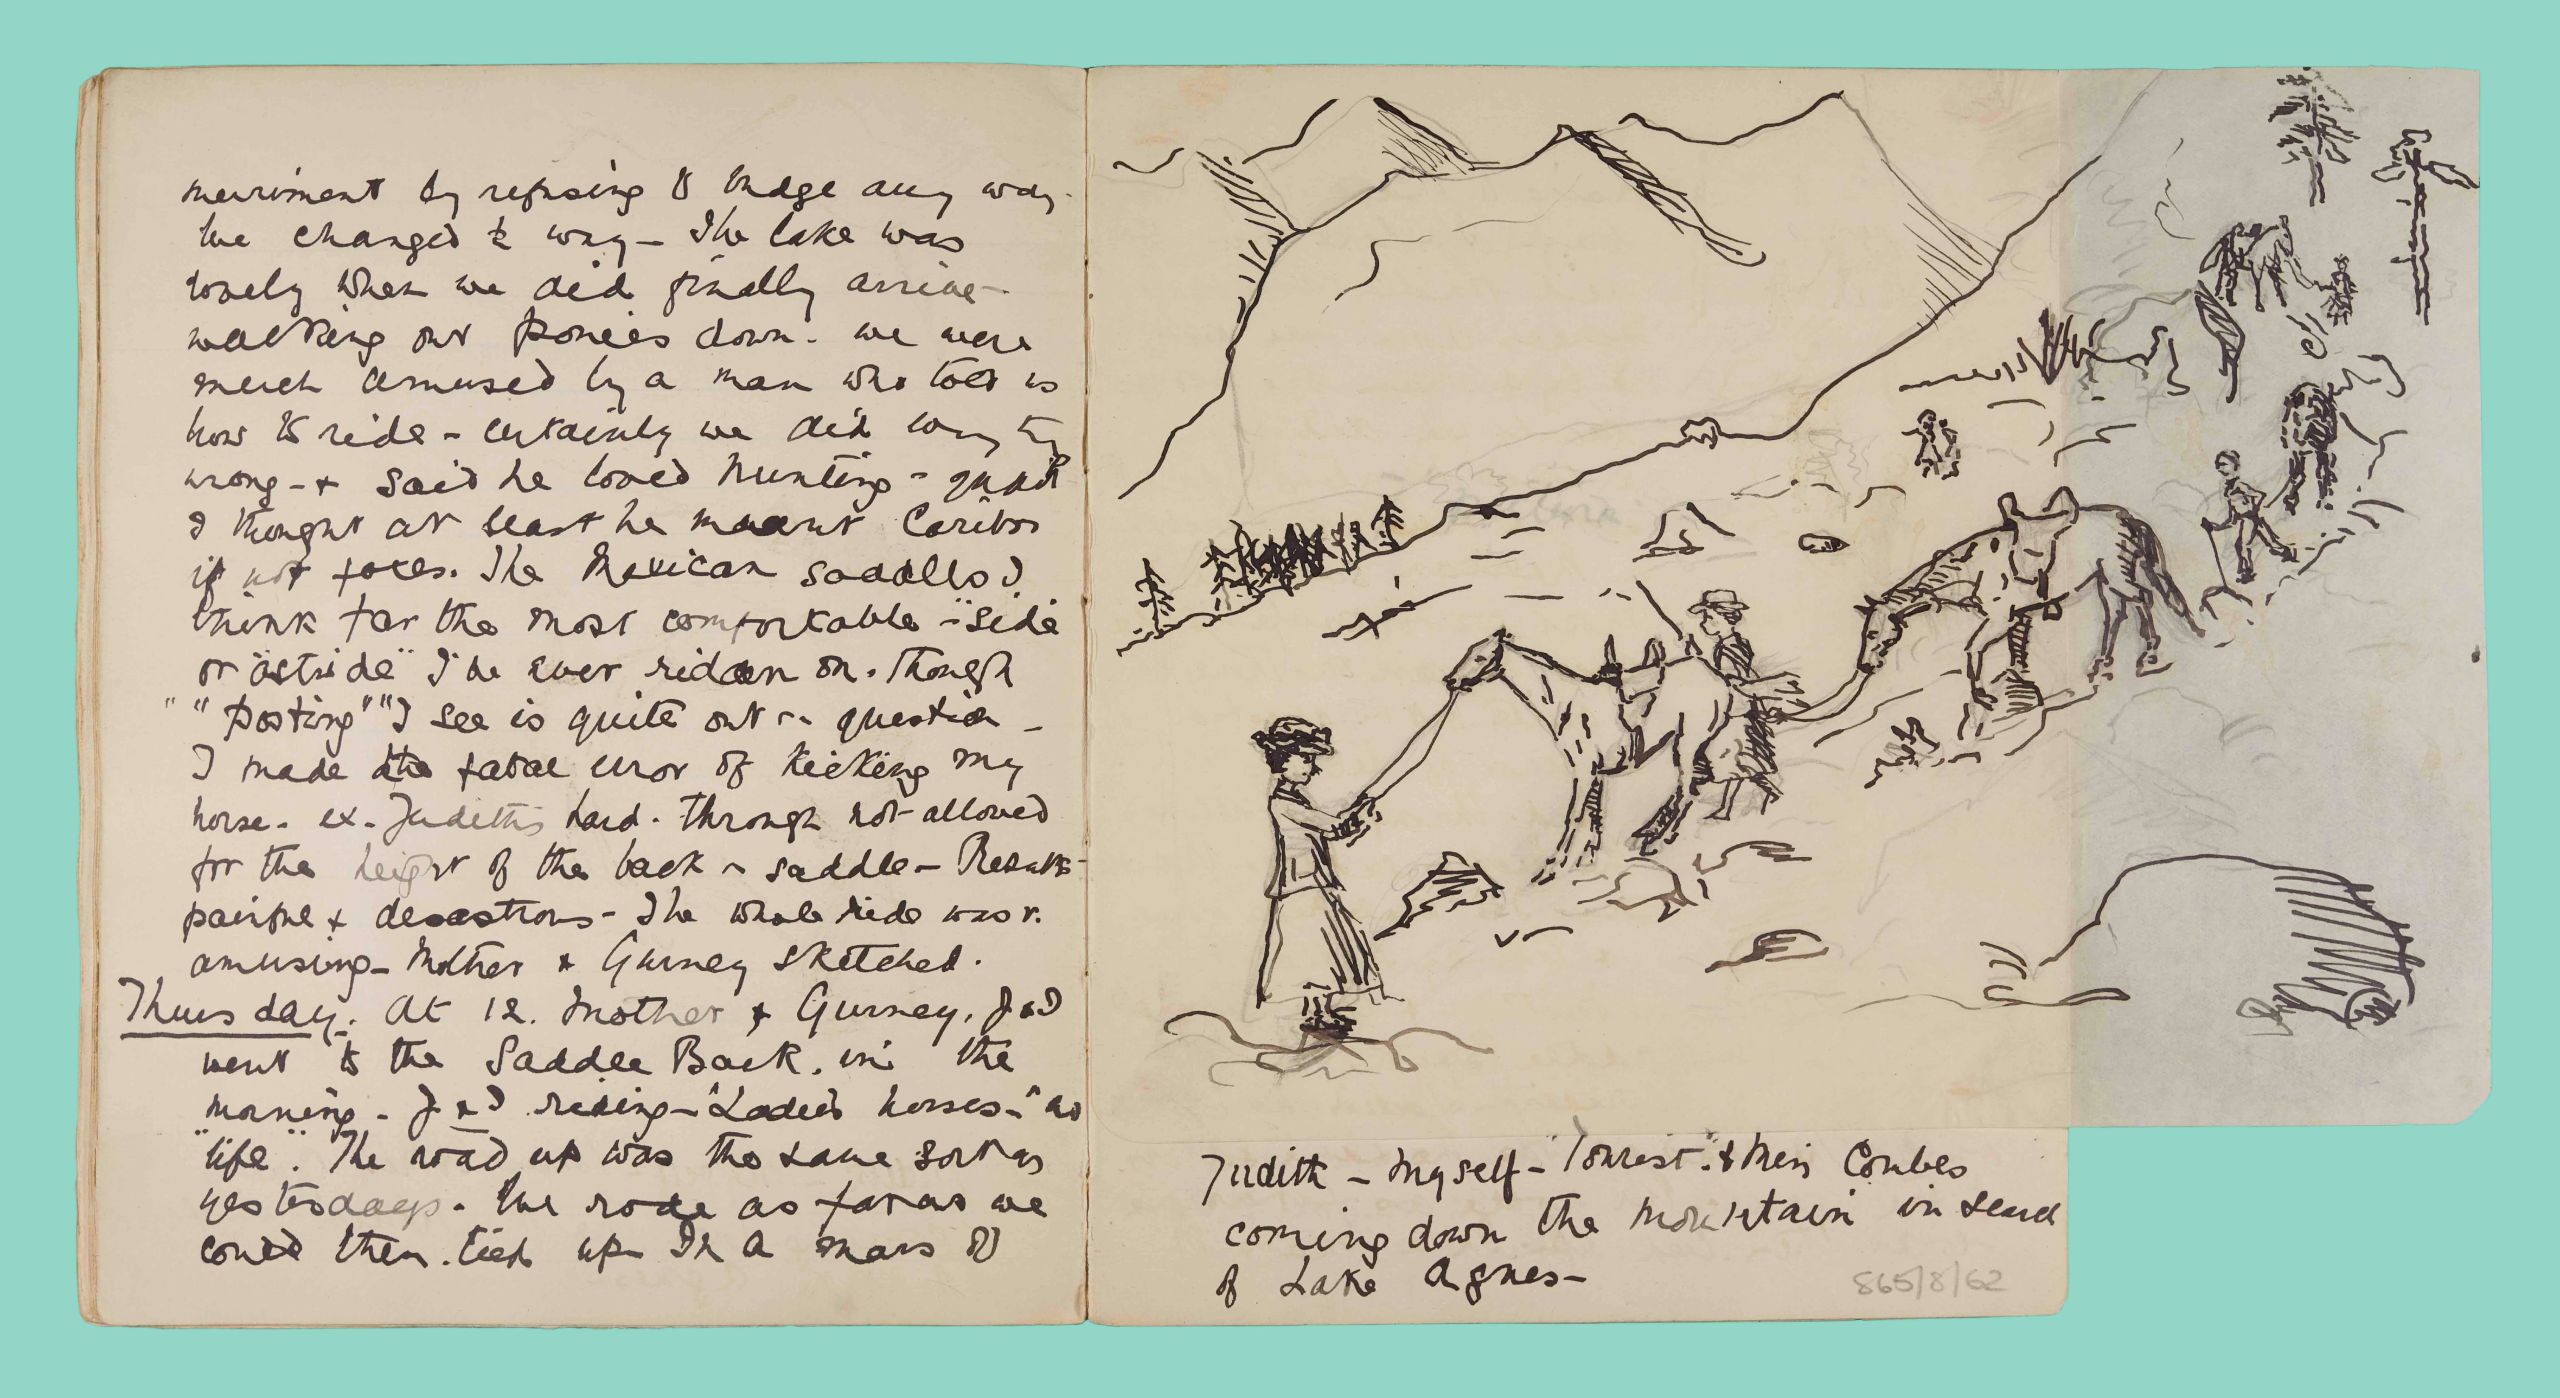 merriment by refusing to budge any way.
we changed & way – The lake was
lovely when we did finally arrive –
walking our ponies down. we were
much amused by a man who told us
how to ride – certainly we did
wrong – & said he loved hunting –
I thought at least he meant Caribou
if not foxes. The Mexican saddles I
think far the most comfortable – "side
or "astride" I've ever ridden on. Though
"posting" I see is quite out question –
I made the fatal error of kicking my
horse. ex. Judith's hard. through not allowed
for the height of the back saddle – Results
painful & desastrous – The whole ride was v.
amusing – Mother & Gurney sketched.
Thursday. At 12. Mother & Gurney, J & I
went to the Saddle Back. in the
morning – J & I riding – "Ladies horses –" as
"life". The road up was the same sort as
yesterdays. We rode as far as we
could then. tied up in a mass of
Judith – Myself – Tourist. & Miss Combes
coming down the mountain in search
of Lake Agnes –
865/8/62